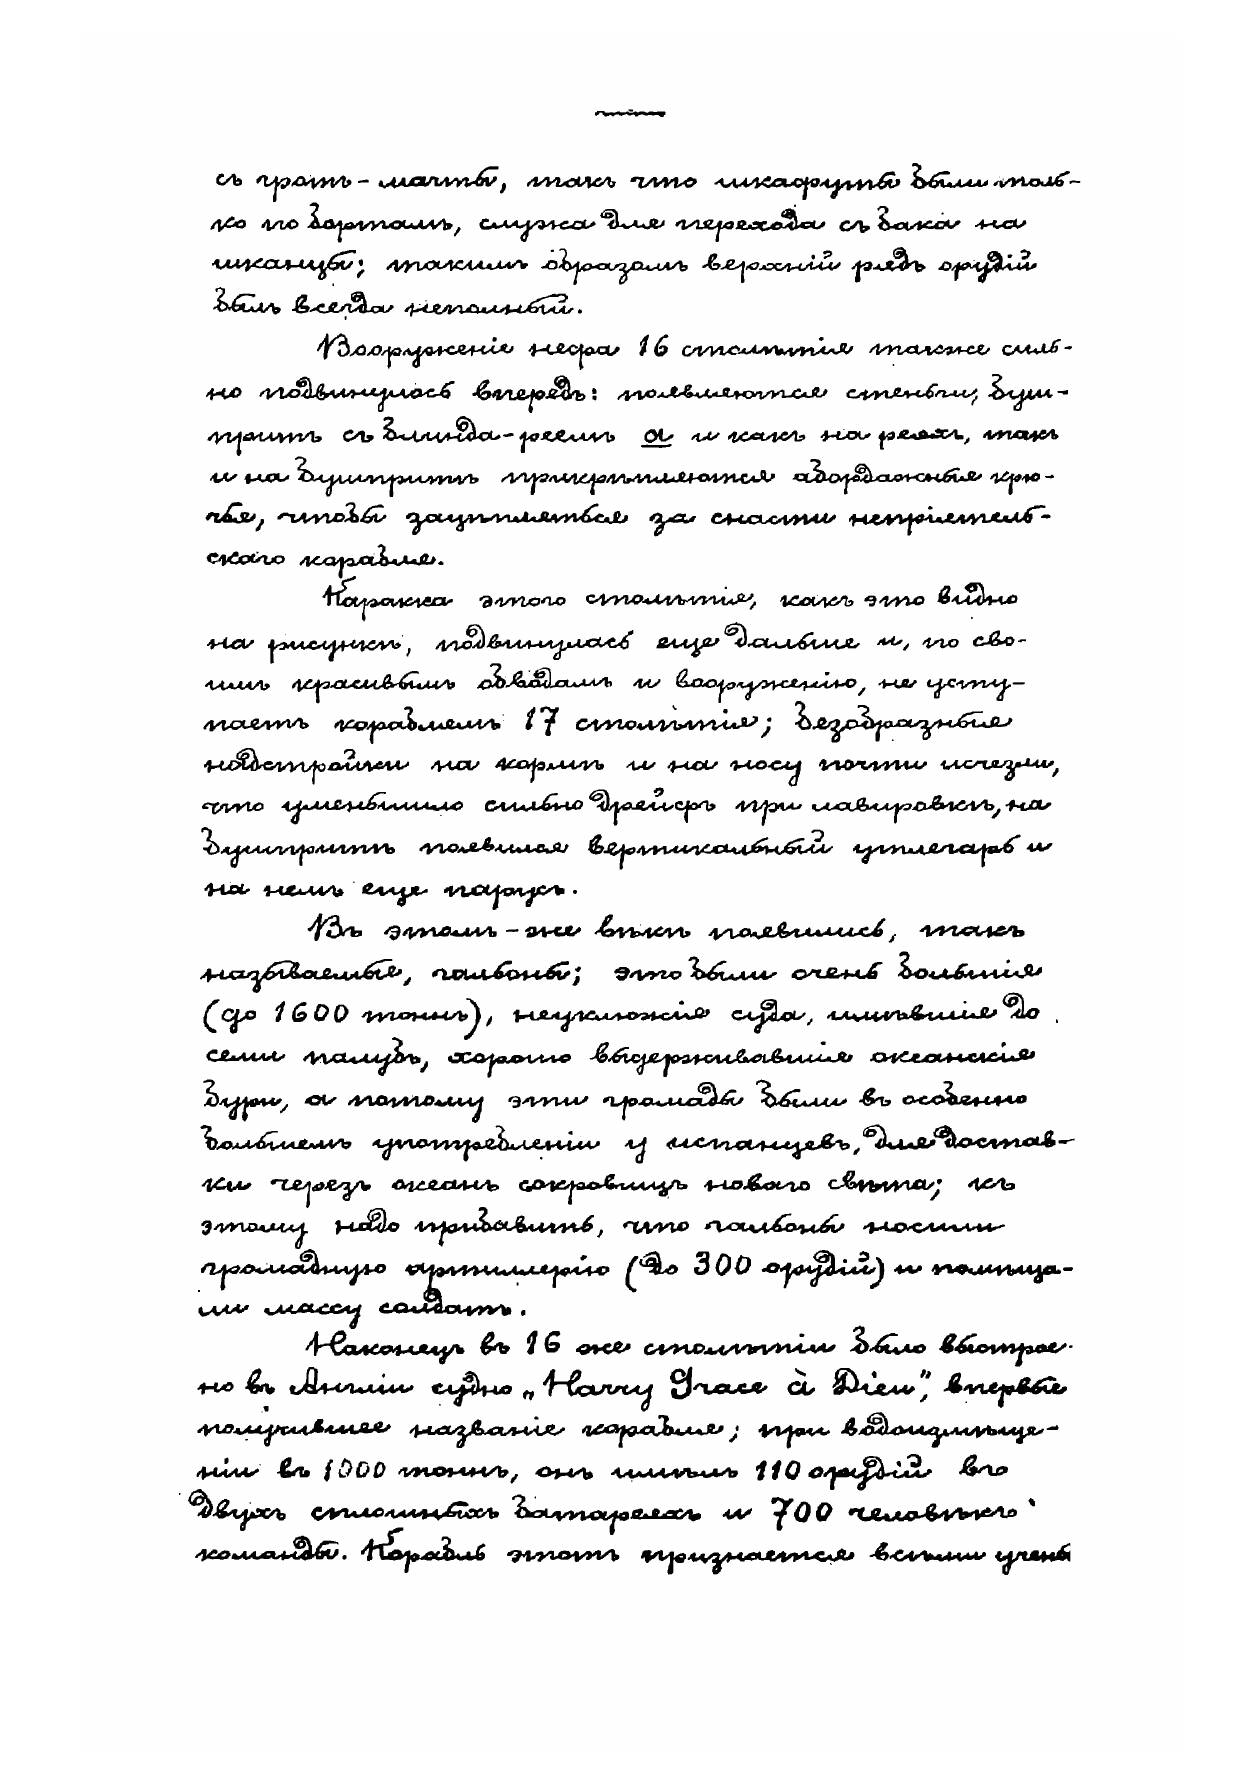 съ гротъ-мачты, такъ что шкафуты были толь-
ко по бортамъ, служа для перехода съ бака на
шканцы; такимъ образомъ верхній рядъ орудій
былъ всегда неполный.
Вооруженіе нефа 16 столѣтія также силь-
но подвинулось впередъ: появляются стеньги, буш-
притъ съ блинда-реемъ а и какъ на реяхъ, такъ
и на бушпритѣ прикрѣпляются абордажные крю-
чья, чтобы зацѣпляться за снасти непріятель-
скаго корабля.
Каракка этого столѣтія, какъ это видно
на рисункѣ, подвинулась еще дальше и, по сво-
имъ красивымъ обводамъ и вооруженію, не усту-
паетъ кораблямъ 17 столѣтія; безобразные
надстройки на кормѣ и на носу почти исчезли,
что уменьшило сильно дрейфъ при лавировкѣ, на
бушпритѣ появился вертикальный утлегарь и
на немъ еще парусъ.
Въ этомъ-же вѣкѣ появились, такъ
называемые, гальоны; это были очень большія
(до 1600 тоннъ), неуклюжія суда, имѣвшія до
семи палубъ, хорошо выдерживавшія океанскія
бури, а потому эти громады были въ особенно
большемъ употребленіи у испанцевъ, для достав-
ки черезъ океанъ сокровищъ новаго свѣта; къ
этому надо прибавить, что гальоны носили
громадную артиллерію (до 300 орудій) и помѣща-
ли массу солдатъ.
Наконецъ въ 16 же столѣтіи было выстрое-
но въ Англіи судно „Harry Grace à Dieu", впервые
получившее названіе корабля; при водоизмѣще-
ніи въ 1000 тоннъ, онъ имѣлъ 110 орудій въ
двухъ сплошныхъ батареяхъ и 700 человѣкъ
команды. Корабль этотъ признается всѣми учены